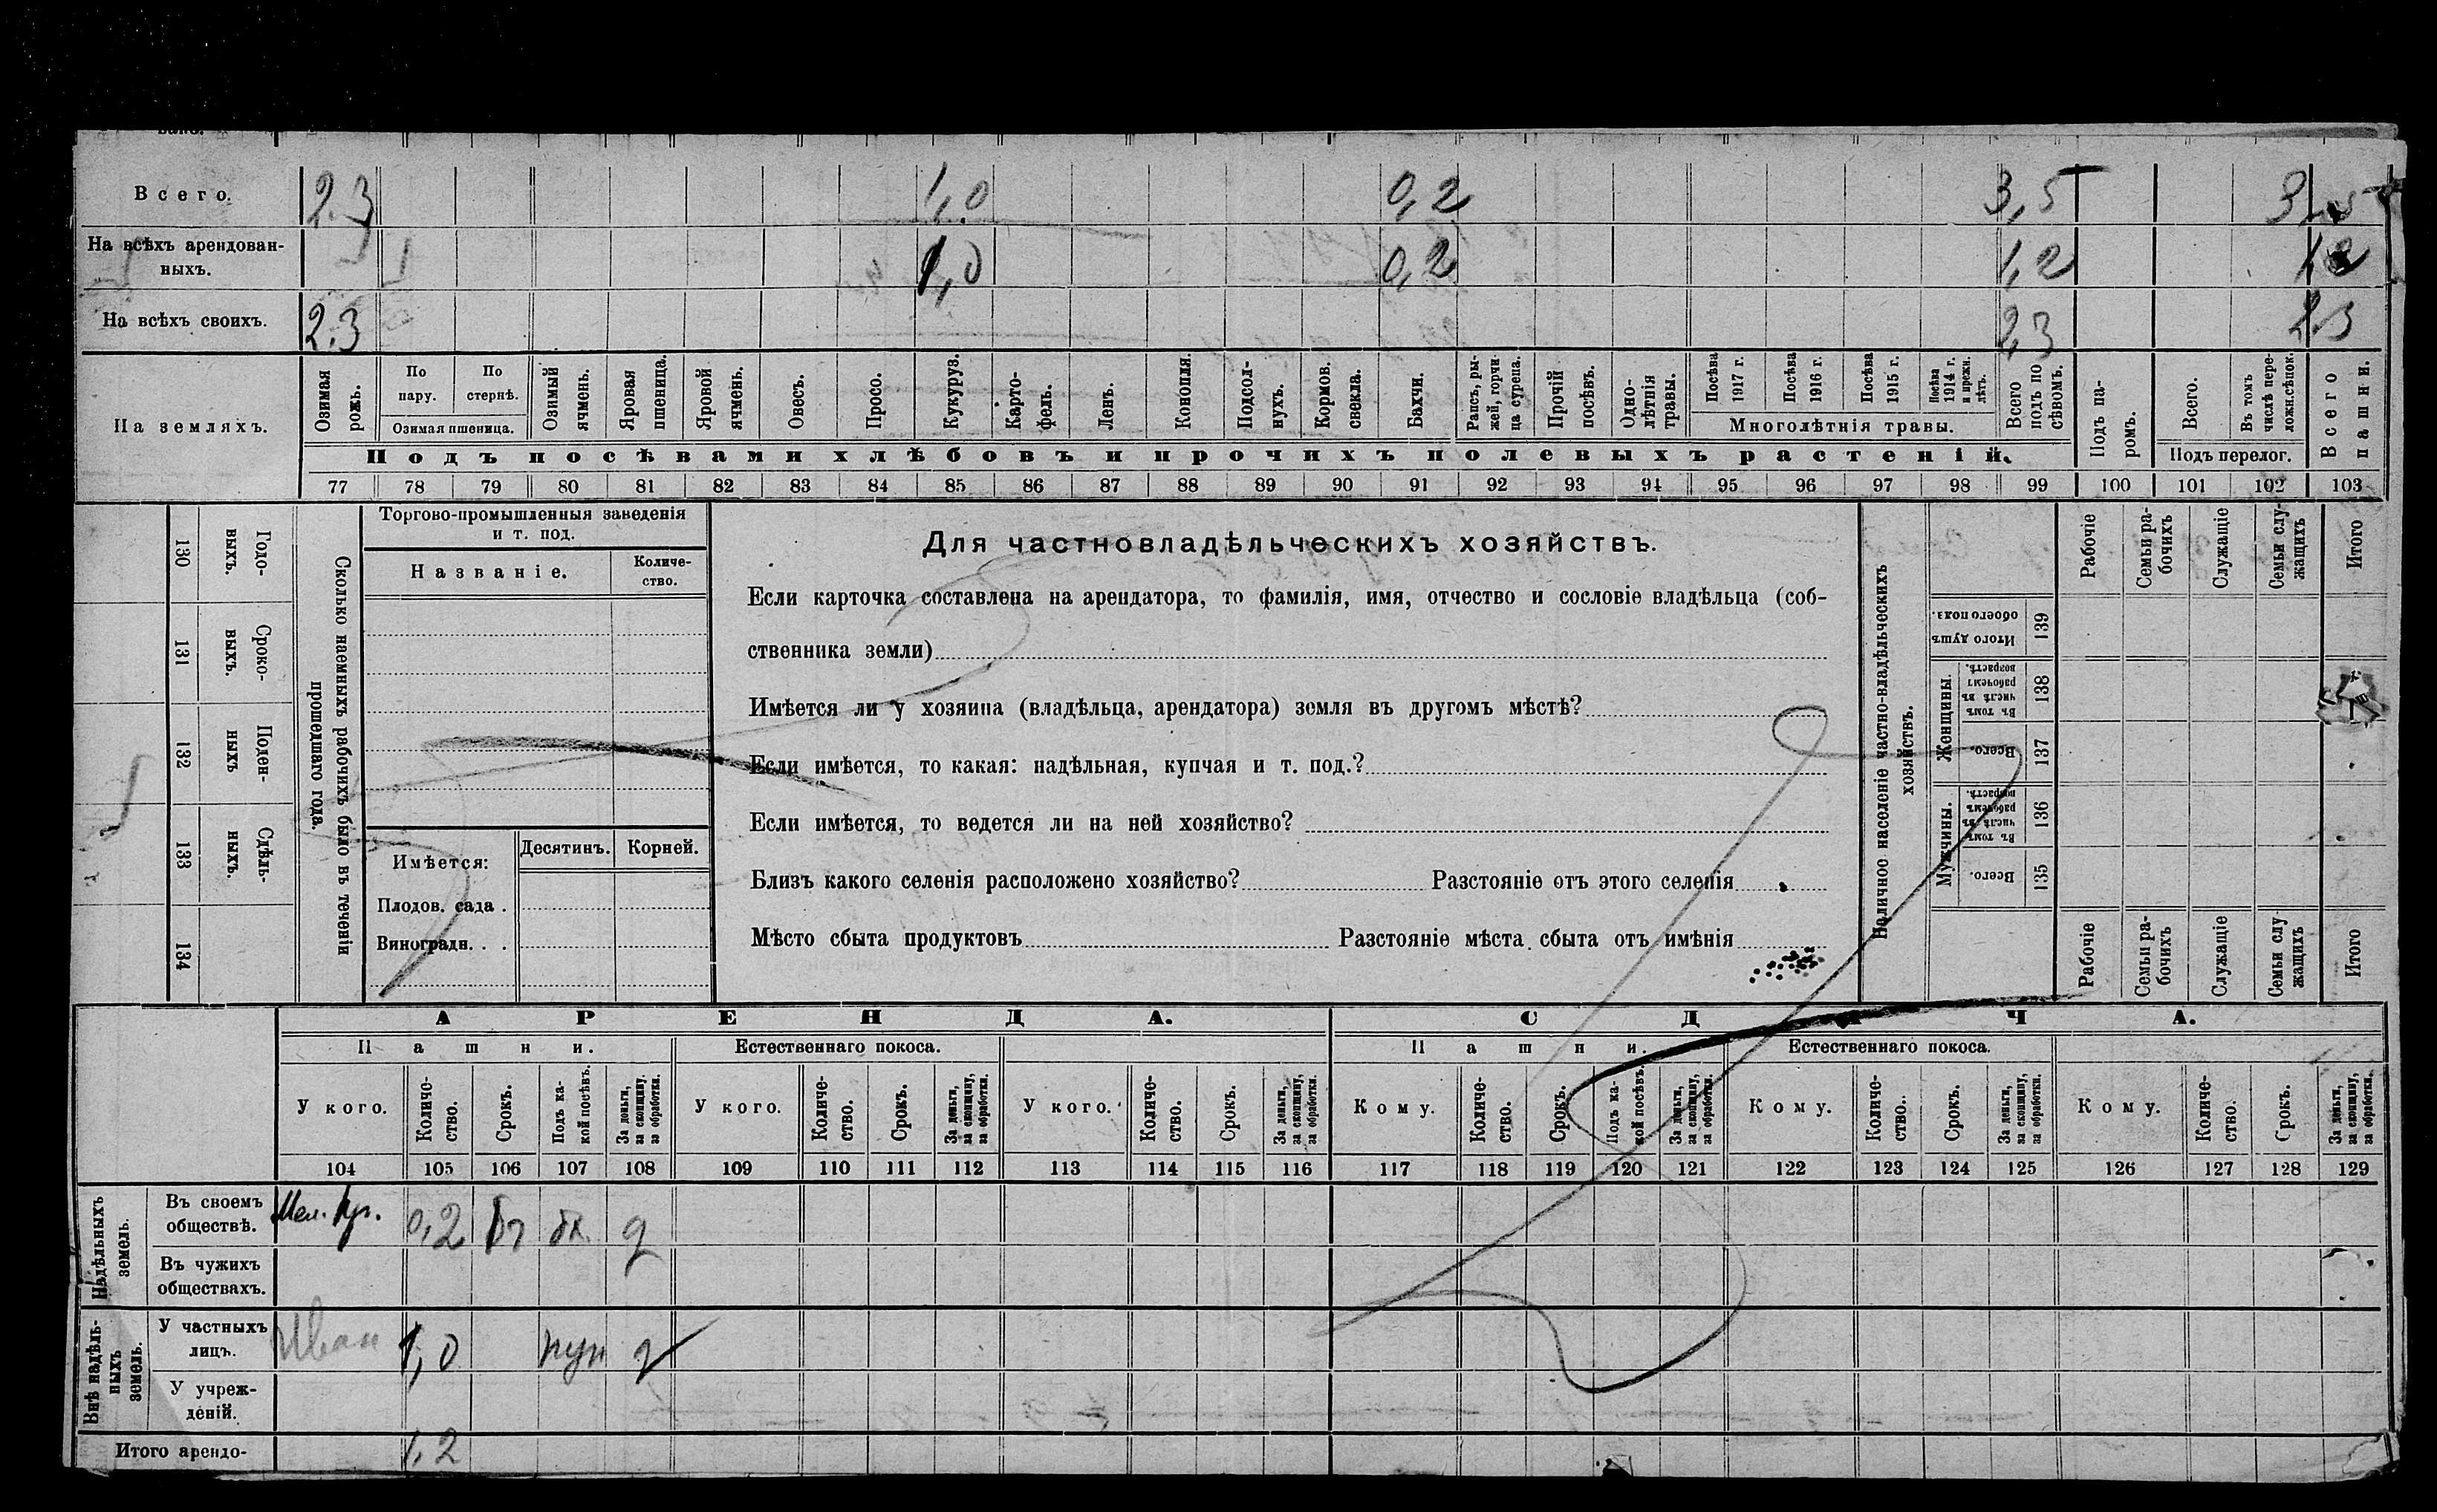 Всего. 2.3 1,0 0,2 3,5 3,5
На всѣхъ арендован-
ныхъ. 1,0 0,2 1,2 1,2
На всѣхъ своихъ. 2.3 2,3 2.3
На земляхъ.
Озимая рожь.
По пару.
По стернѣ.
Озимая пшеница.
Озимый ячмень.
Яровая пшеница.
Яровой ячмень.
Овесъ.
Просо.
Кукуруз.
Карто-
фель.
Ленъ.
Конопля.
Подсол-
нухъ.
Кормов. свекла.
Бахчи.
Рапсъ, ры-
жей, горчи
ца сурепа.
Прочій посѣвъ.
Одно-
лѣтнія
травы.
Посѣва 1917 г.
Посѣва 1916 г.
Посѣва 1915 г.
Посѣва 1914 г. и прежн. лѣтъ.
Многолѣтнія травы.
Всего подъ по
сѣвомъ.
Подъ посѣвами хлѣбовъ и прочихъ полевыхъ растеній.
Подъ па-
ромъ.
Всего.
Въ томъ числѣ пере-
ложн.сѣнок.
Подъ перелог.
Всего пашни.
77 78 79 80 81 82 83 84 85 86 87 88 89 90 91 92 93 94 95 96 97 98 99 100 101 102 103
130 Годо-
выхъ.
131 Сроко-
выхъ.
132 Поден-
ныхъ
133 Сдѣль-
ныхъ.
134
Сколько наемныхъ рабочихъ было въ теченіи
прошедшаго года.
Торгово-промышленныя заведенія
и т. под.
Названіе.
Количе-
ство.
Имѣется:
Десятинъ.
Корней.
Плодов. сада .
Виноградн. . .
Для частновладѣльческихъ хозяйствъ.
Если карточка составлена на арендатора, то фамилія, имя, отчество и сословіе владѣльца (соб-
ственника земли)
Имѣется ли у хозяина (владѣльца, арендатора) земля въ другомъ мѣстѣ?
Если имѣется, то какая: надѣльная, купчая и т. под.?
Если имѣется, то ведется ли на ней хозяйство?
Близъ какого селенія расположено хозяйство? Разстояніе отъ этого селенія
Мѣсто сбыта продуктовъ Разстояніе мѣста сбыта отъ имѣнія
Наличное населеніе частно-владѣльческихъ
хозяйствъ.
Рабочіе
Семьи ра-
бочихъ
Служащіе
Семьи слу-
жащихъ
Итого
Итого душъ обоего пола. 139
Женщины.
Въ томъ числѣ въ рабочемъ возрастѣ. 138
Всего. 137
Мужчины.
Въ томъ числѣ въ рабочемъ возрастѣ. 136
Всего. 135
Рабочіе
Семьи ра-
бочихъ
Служащіе
Семьи слу
жащихъ
Итого
АРЕНДА. СДАЧА.
Пашни. Естественнаго покоса. Пашни. Естественнаго покоса.
У кого.
Количе-
ство.
Срокъ.
Подъ ка-
кой посѣвъ.
За деньги,
за скопщину,
за обработки.
У кого.
Количе-
ство.
Срокъ.
За деньги,
за скопщину,
за обработки.
У кого.
Количе-
ство.
Срокъ.
За деньги,
за скопщину,
за обработки.
Кому.
Количе-
ство.
Срокъ.
Подъ ка-
кой посѣвъ.
За деньги,
за скопщину,
за обработки.
Кому.
Количе-
ство.
Срокъ.
За деньги,
за скопщину,
за обработки.
Кому.
Количе-
ство.
Срокъ.
За деньги,
за скопщину,
за обработки.
104 105 106 107 108 109 110 111 112 113 114 115 116 117 118 119 120 121 122 123 124 125 126 127 128 129
Надѣльныхъ
земель.
Въ своемъ
обществѣ. 0,2
Въ чужихъ
обществахъ.
Внѣ надѣль-
ныхъ
земель.
У частныхъ
лицъ. Иван 1,0
У учреж-
деній.
Итого арендо- 1,2